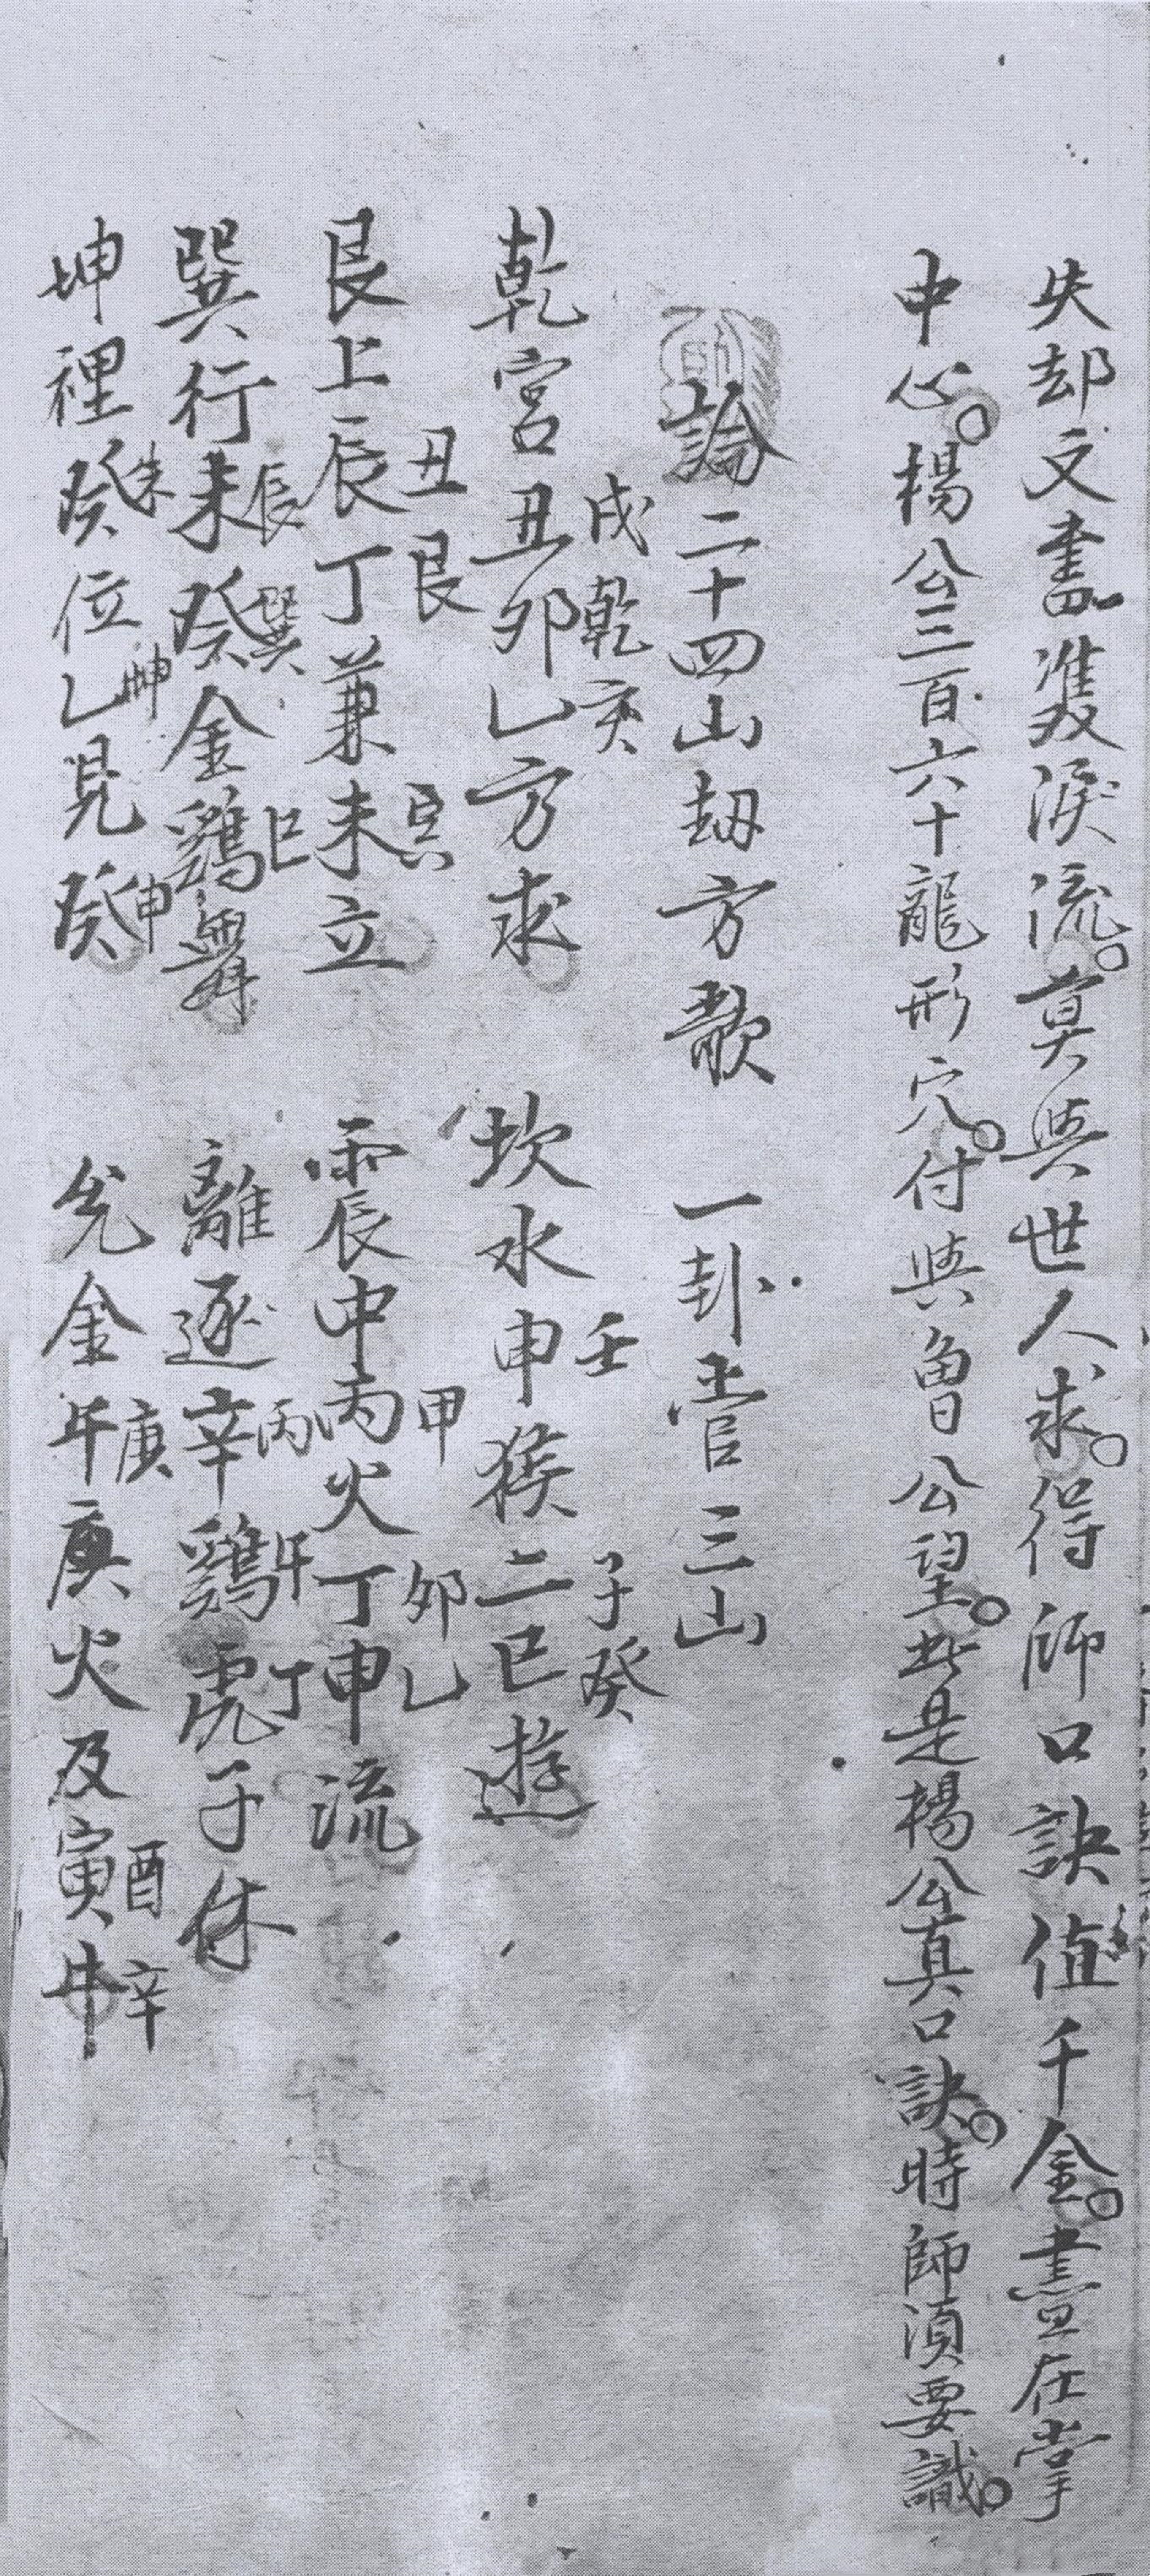 失却文書雙淚流。莫與世人求。得師口訣值千金。盡在掌
中心。楊公三百六十龍形穴。付與魯公望。此是楊公真口訣。時師須要識。
論二十四山刼方歌 一卦管三山
戌乾亥 壬子癸
乾宮丑卯乙方求 坎水申猴二巳遊
丑艮寅 甲卯乙
艮上辰丁兼未立 震中丙火丁申流
辰巽巳 丙午丁
巽行未癸金鷄舞 離逐辛鷄虎子休
未坤申 庚酉辛
坤裡癸位乙見癸 兌金午庚火及寅牛